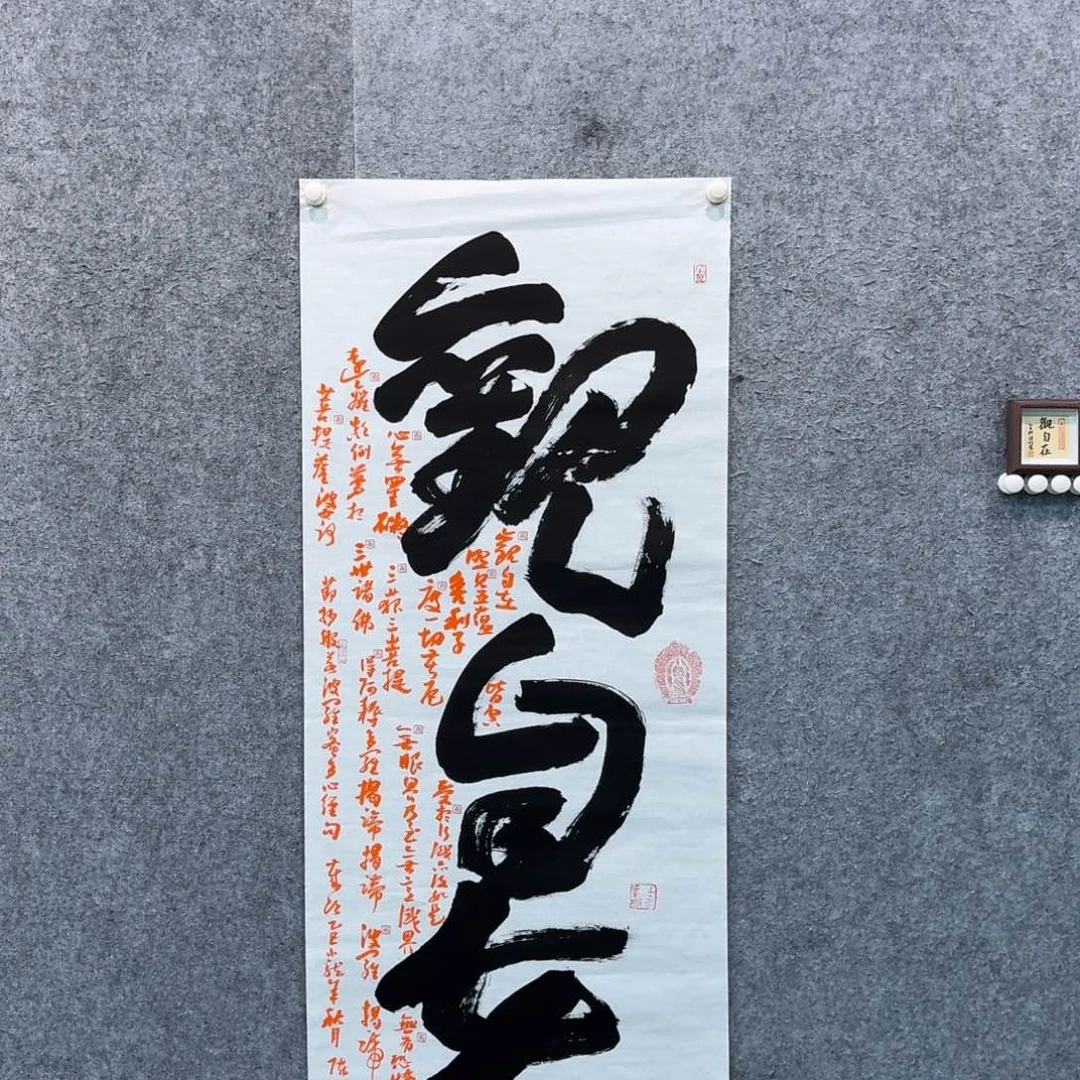 觀自在
觀自在
照見五蘊
皆空
舍利子
度一切苦厄
受想行識亦復如是
心無罣礙
三藐三菩提
無眼界乃至無意識界
無有恐怖
遠離顛倒夢想
三世諸佛
得阿耨多羅揭諦揭諦
波羅揭諦
菩提薩婆訶
節抄般若波羅蜜多心經句
乙巳小龍年秋月
觀自在